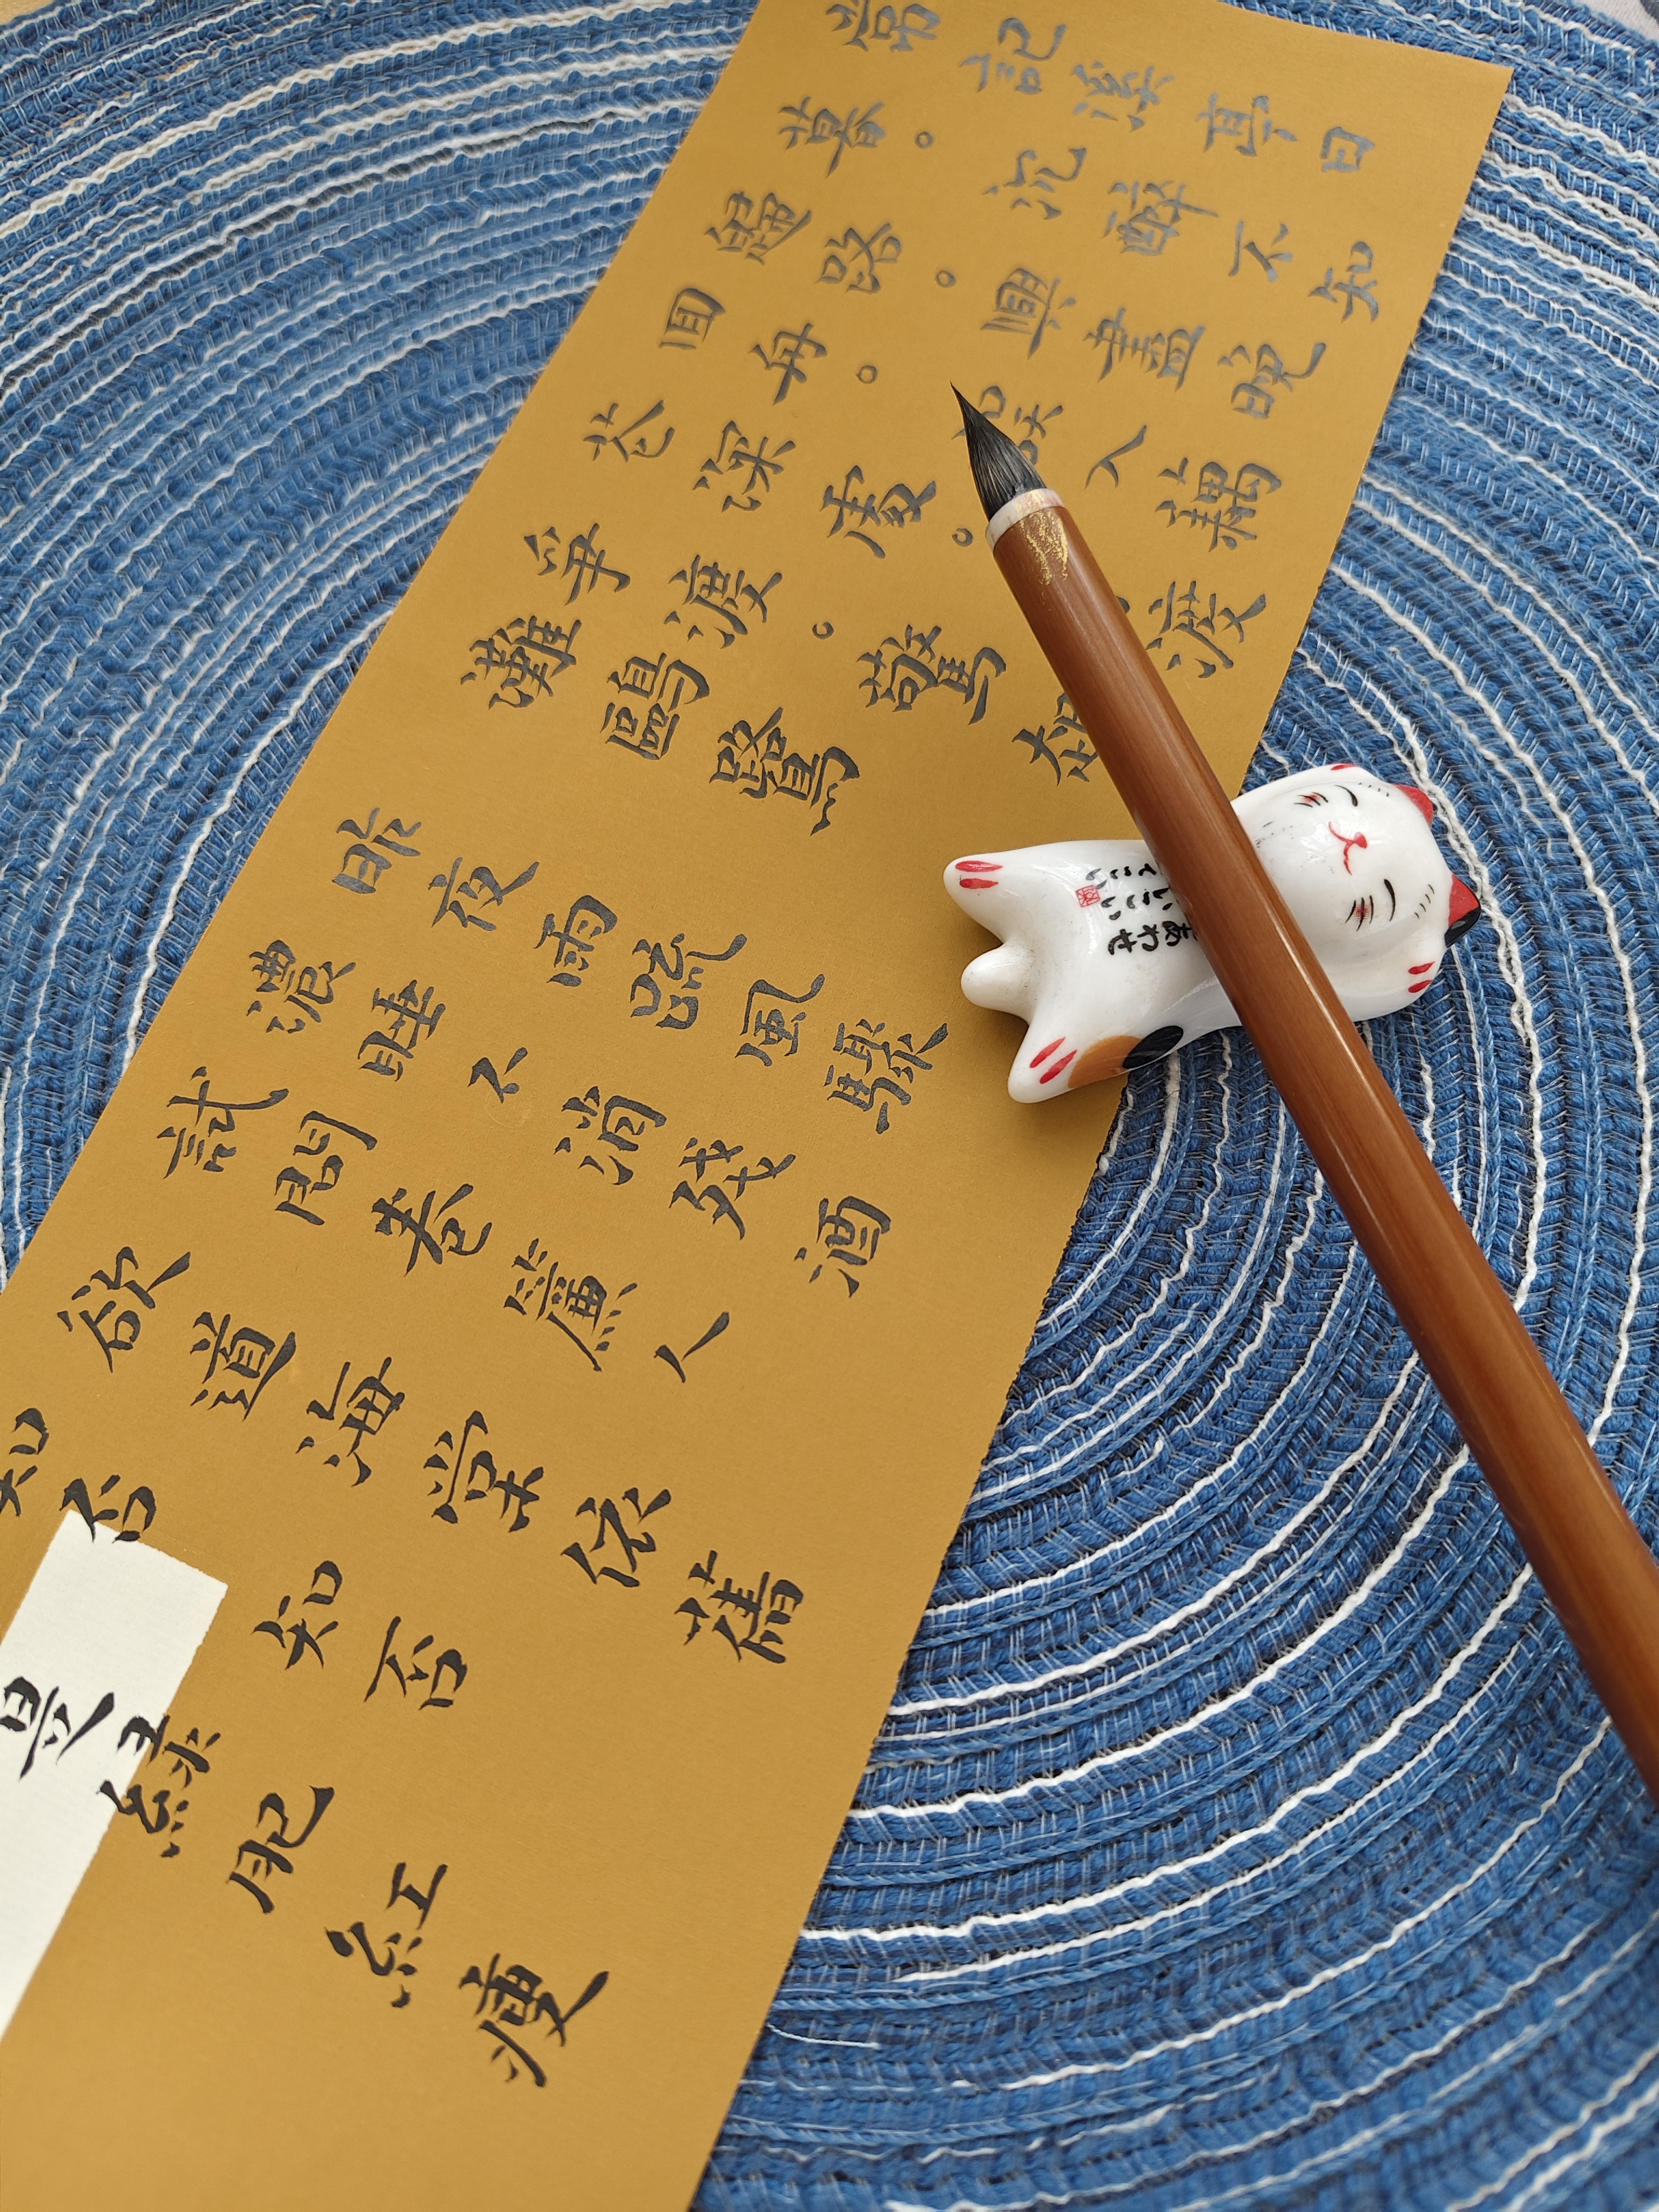 常記溪亭日
暮。沉醉不知
歸路。興盡晚
回舟。誤入藕
花深處。渡
爭渡。驚起
灘鷗鷺
昨夜雨疏風驟
濃睡不消殘酒
試問卷簾人
欲道海棠依舊
知否知否
是綠肥紅瘦